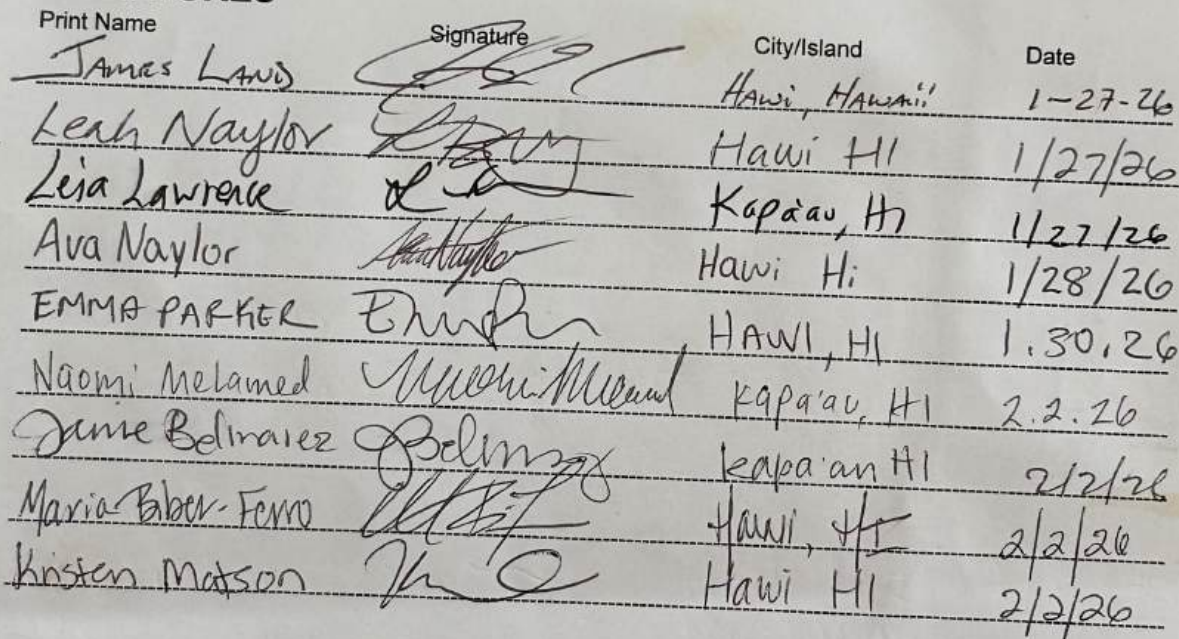 Print Name Signature City/Island Date
JAMES LAND HAWI, HAWAII 1-27-26
Leah Naylor Hawi HI 1/27/26
Leia Lawrence Kapa'au, HI 1/27/26
Ava Naylor Ava Naylor Hawi Hi 1/28/26
EMMA PARKER HAWI, HI 1.30.26
Naomi Melamed Kapa'au, HI 2.2.26
Jamie Belmarez Kapa'au HI 2/2/26
Maria Biber-Ferro Hawi, HI 2/2/26
Kristen Matson Hawi HI 2/2/26